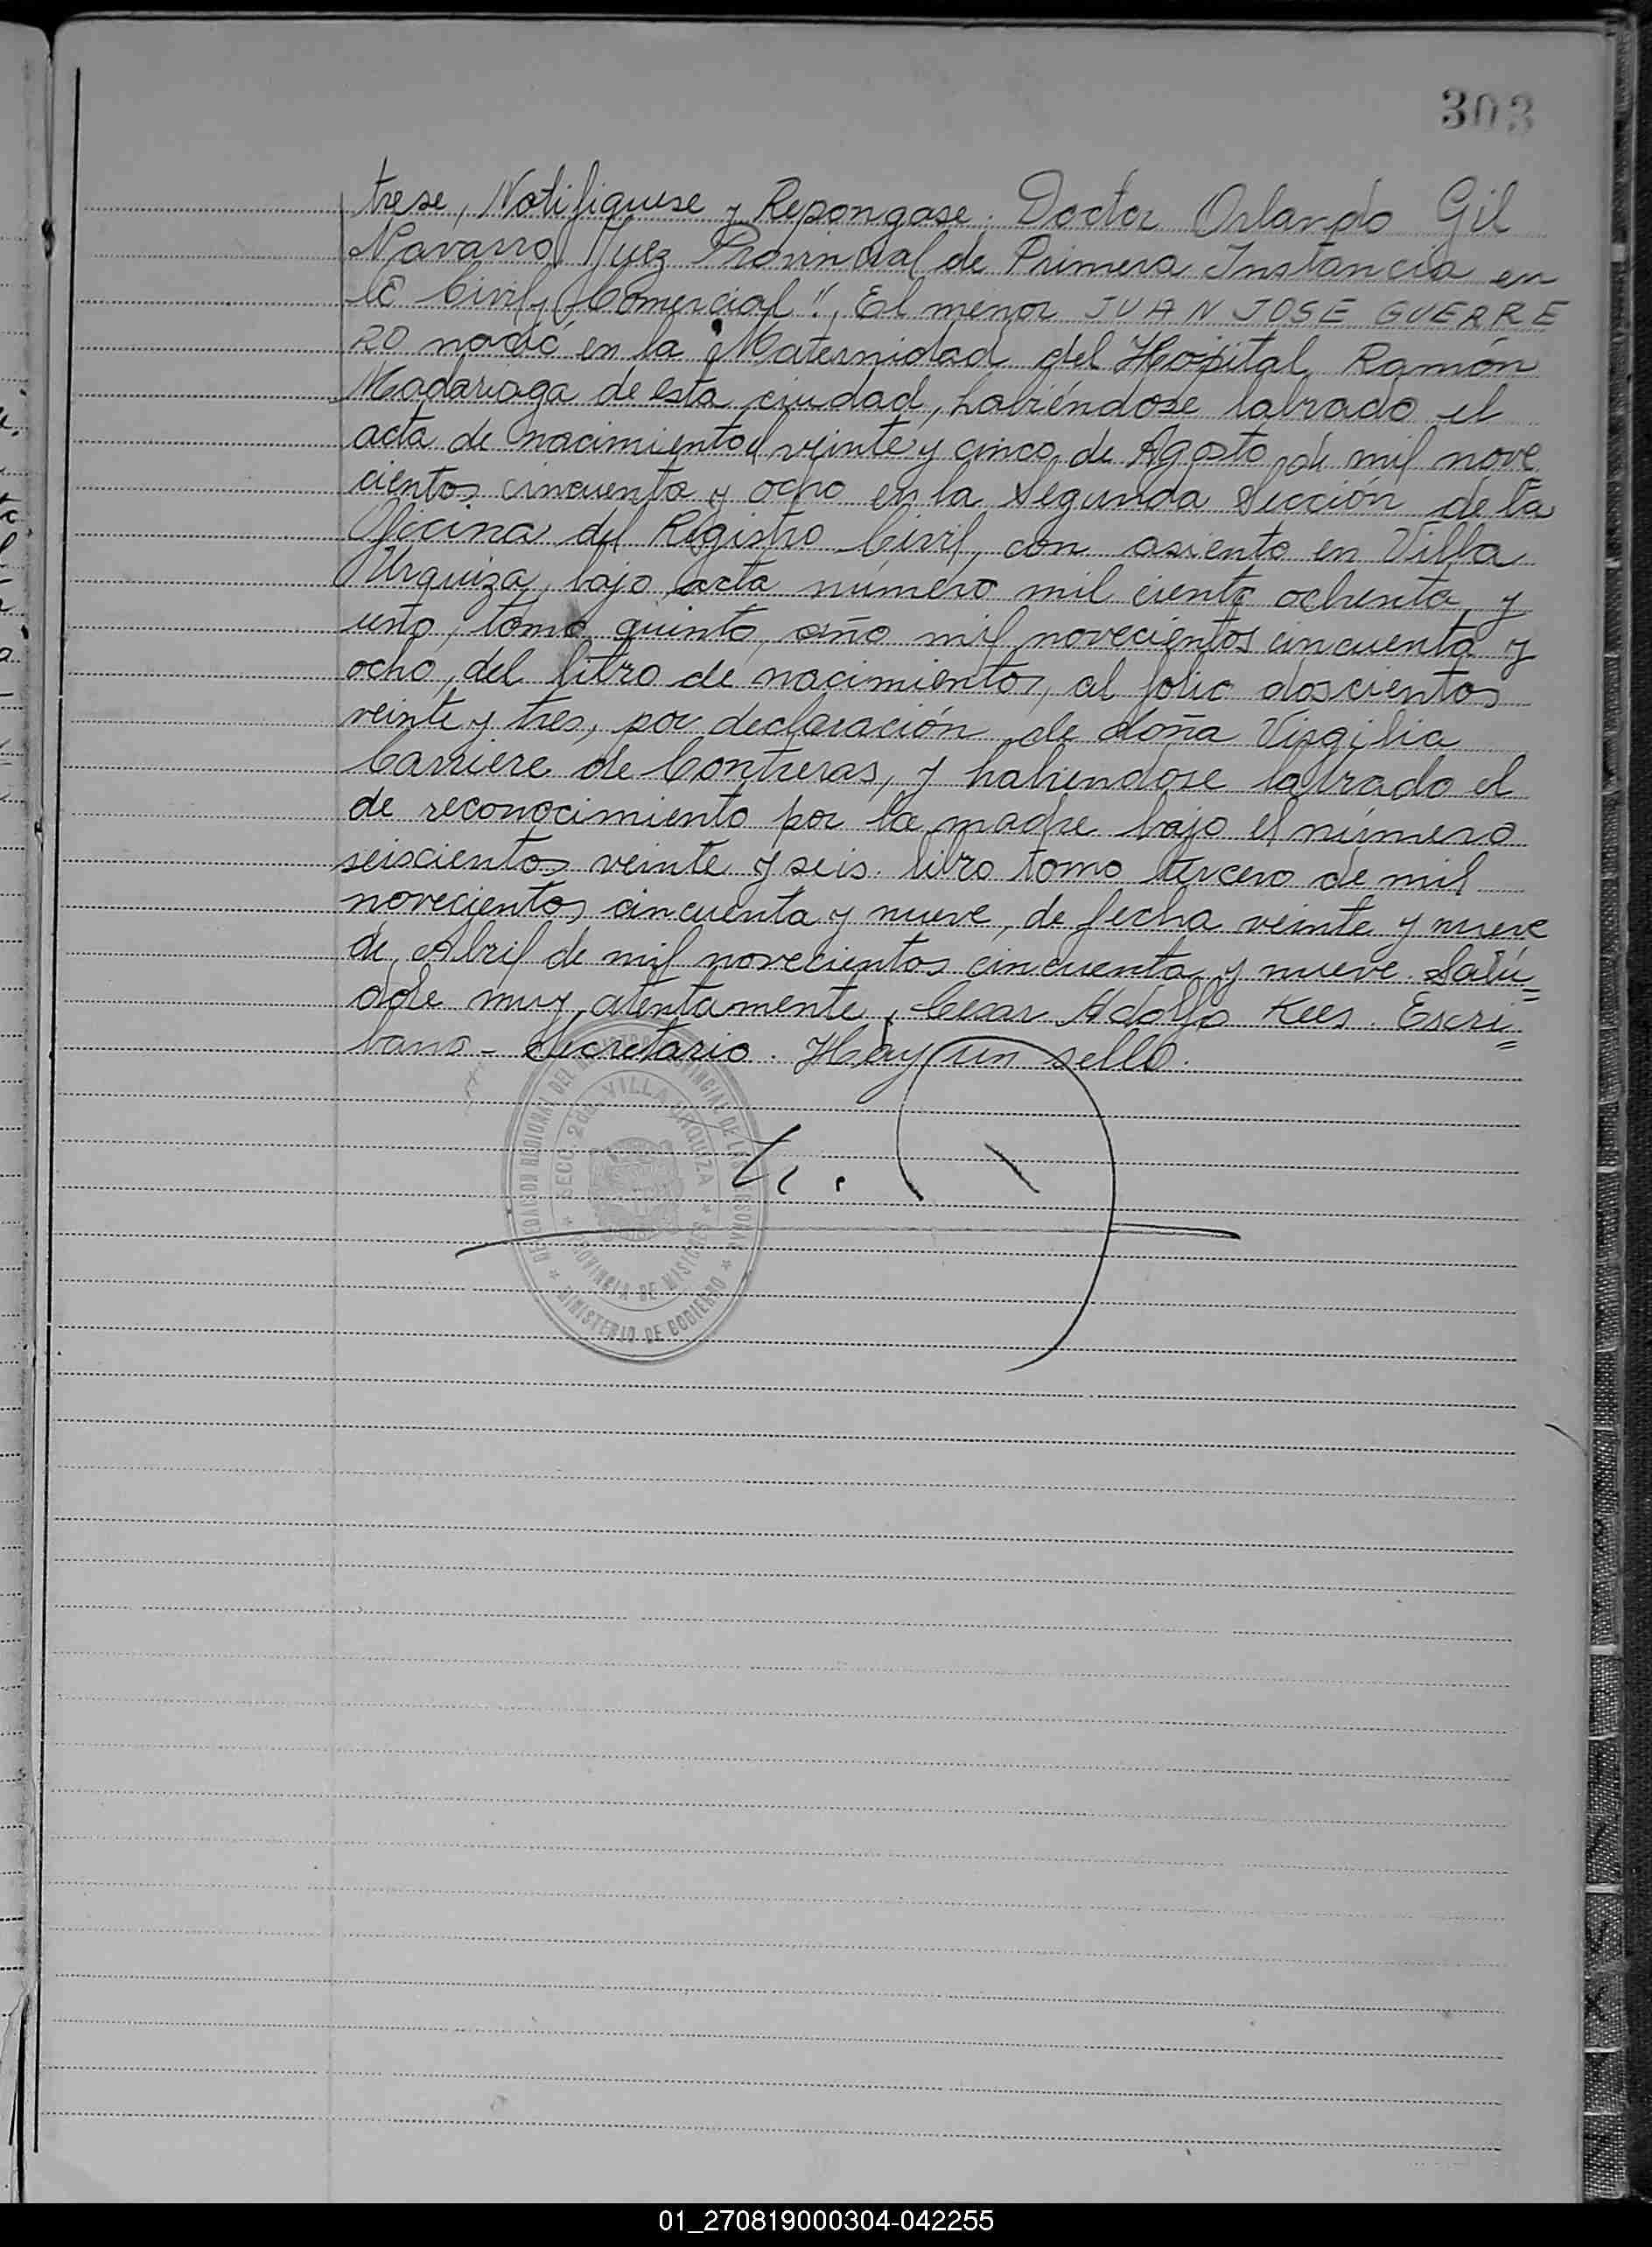 303
trese, Notifiquese y Repongase. Doctor Orlando Gil
Navarro Juez Provincial de Primera Instancia en
lo Civil y Comercial". El menor JUAN JOSE GUERRE
RO nació en la Maternidad del Hospital Ramón
Madariaga de esta ciudad, habiéndose labrado el
acta de nacimiento el veinte y cinco de Agosto de mil nove
cientos cincuenta y ocho en la Segunda Sección de la
Oficina del Registro Civil, con asiento en Villa
Urquiza, bajo acta número mil ciento ochenta y
uno, tomo quinto, año mil novecientos cincuenta y
ocho, del libro de nacimientos, al folio doscientos
veinte y tres, por declaración de doña Virgilia
Carriere de Contreras, y habiendose labrado el
de reconocimiento por la madre bajo el número
seiscientos veinte y seis. libro tomo tercero de mil
novecientos cincuenta y nueve, de fecha veinte y nueve
de Abril de mil novecientos cincuenta y nueve. Salú=
dole muy atentamente, Cesar Adolfo Kees. Escri=
bano - Secretario. Hay un sello.
DEL PROVINCIAL DE LAS PERSONAS * MINISTERIO DE GOBIERNO *
SECC. 2da. VILLA URQUIZA * PROVINCIA DE MISIONES *
01_270819000304-042255